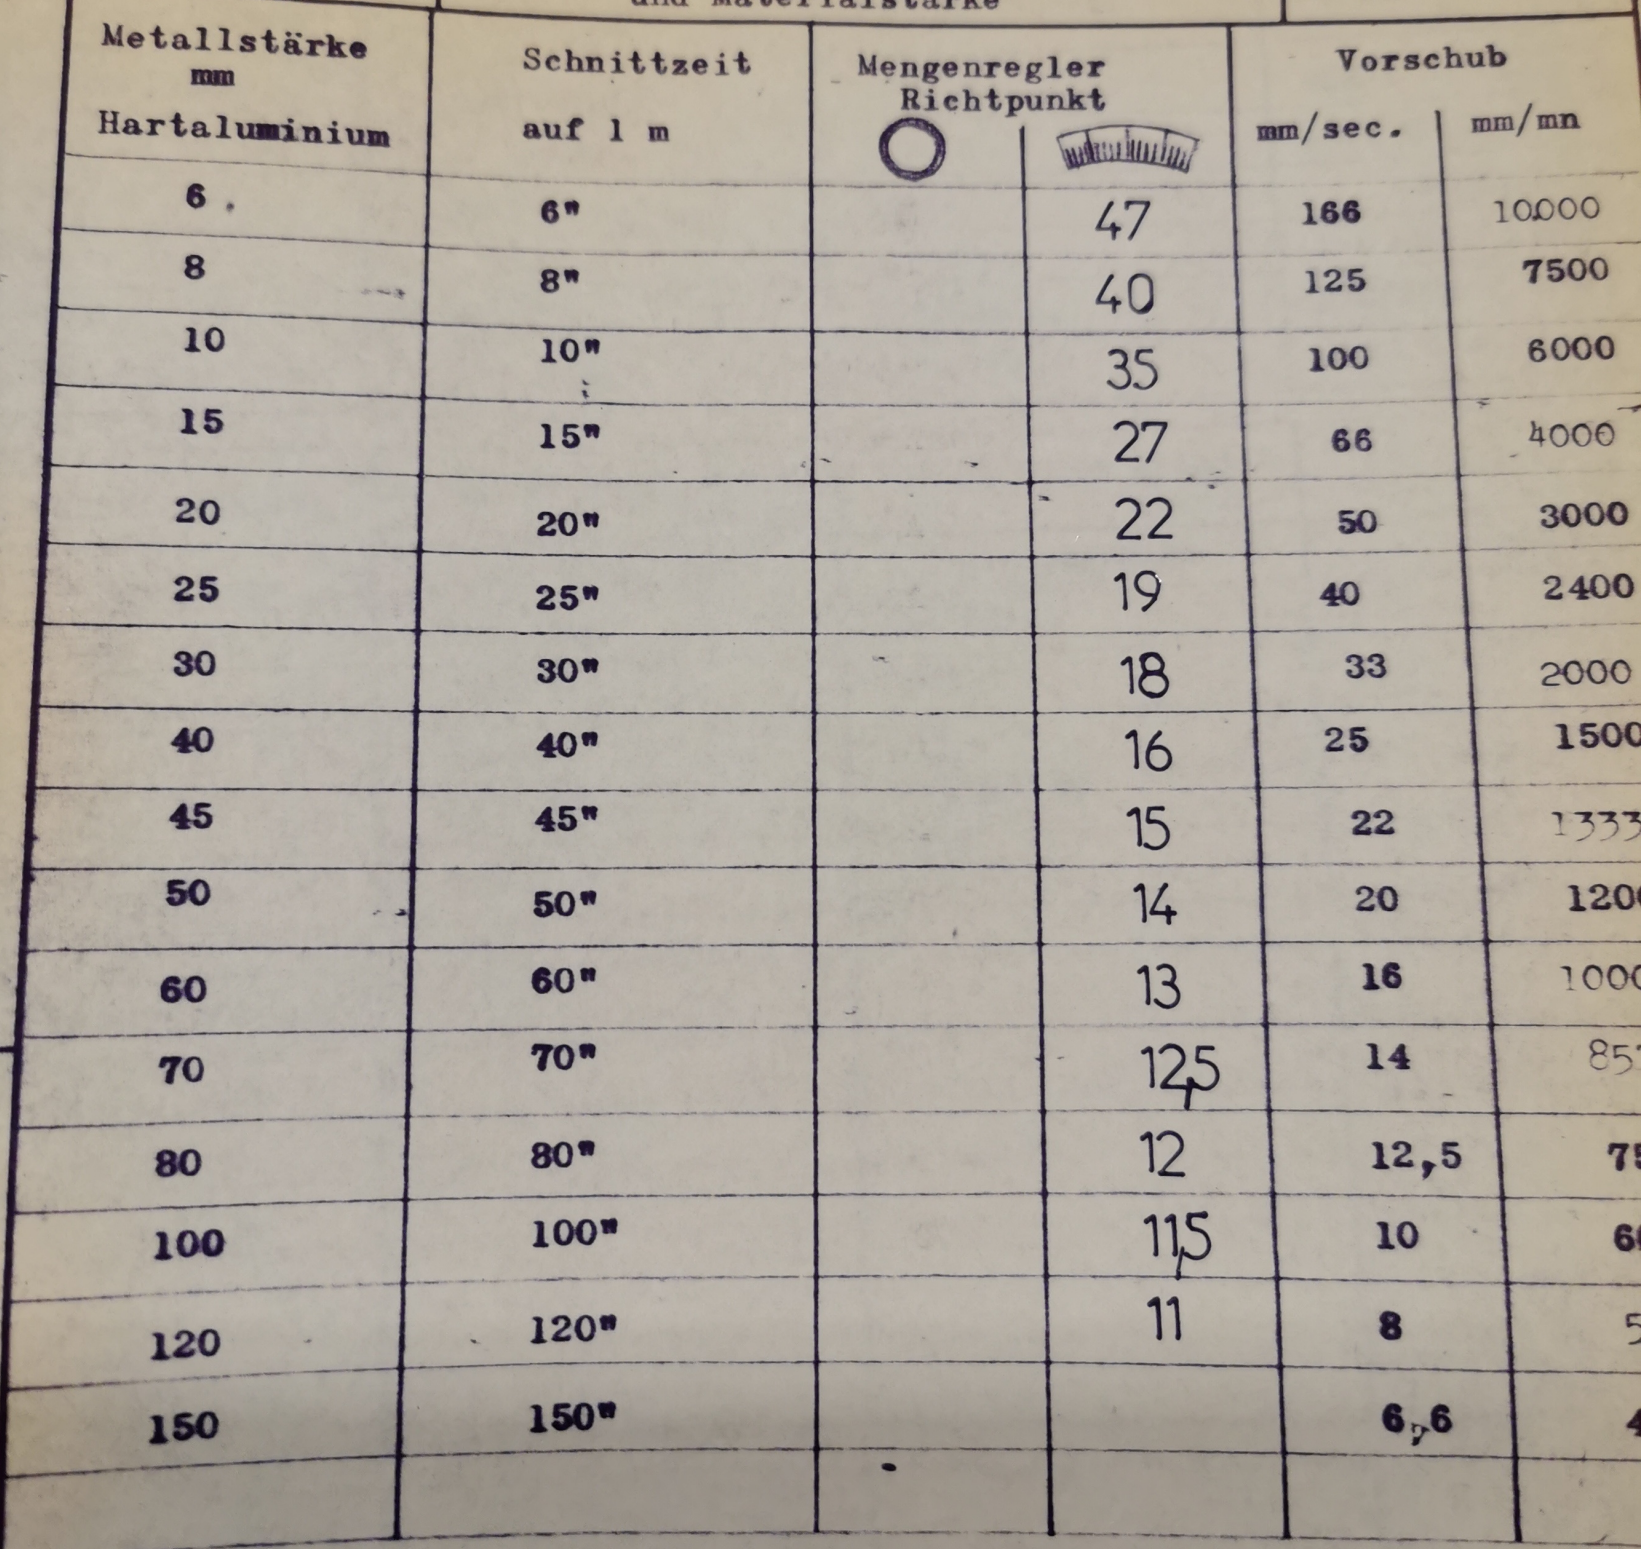 und Materialstärke
Metallstärke
mm
Hartaluminium
Schnittzeit
auf 1 m
Mengenregler
Richtpunkt
Vorschub
mm/sec. mm/mn
6 6" 47 166 10000
8 8" 40 125 7500
10 10" 35 100 6000
15 15" 27 66 4000
20 20" 22 50 3000
25 25" 19 40 2400
30 30" 18 33 2000
40 40" 16 25 1500
45 45" 15 22 1333
50 50" 14 20 1200
60 60" 13 16 1000
70 70" 12,5 14
80 80" 12 12,5
100 100" 11,5 10
120 120" 11 8
150 150" 6,6